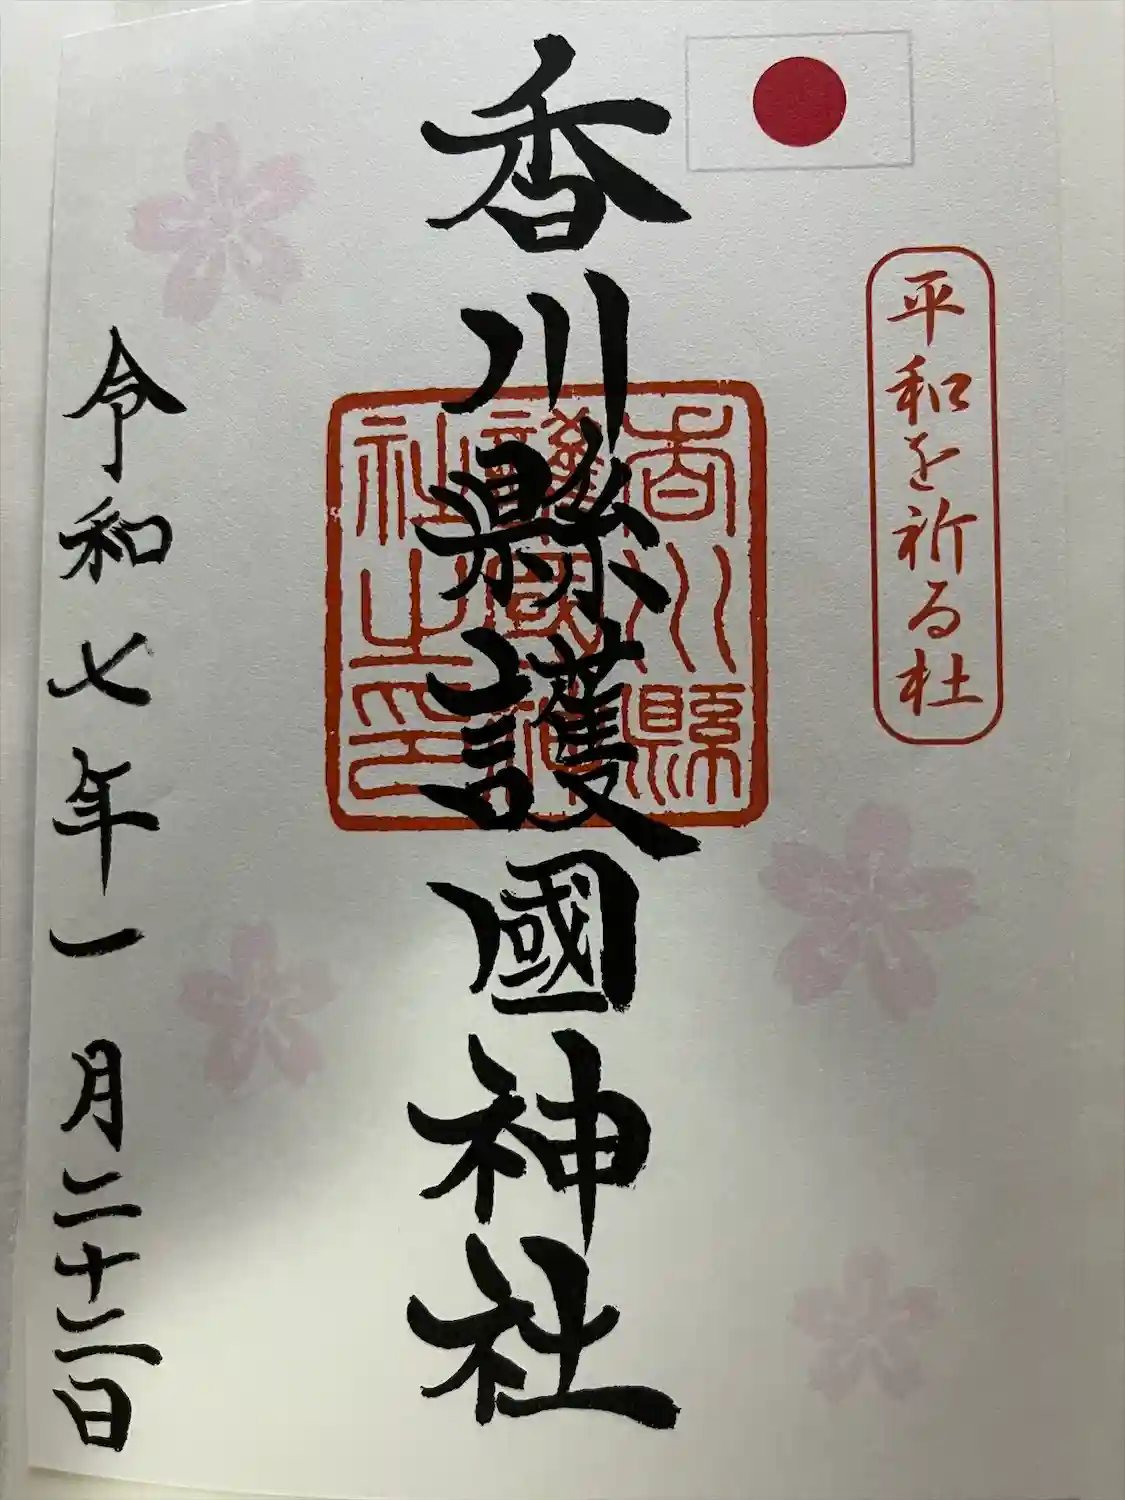 平和を祈る杜
香川縣護國神社
香川縣
護國神
社之印
令和七年一月二十二日